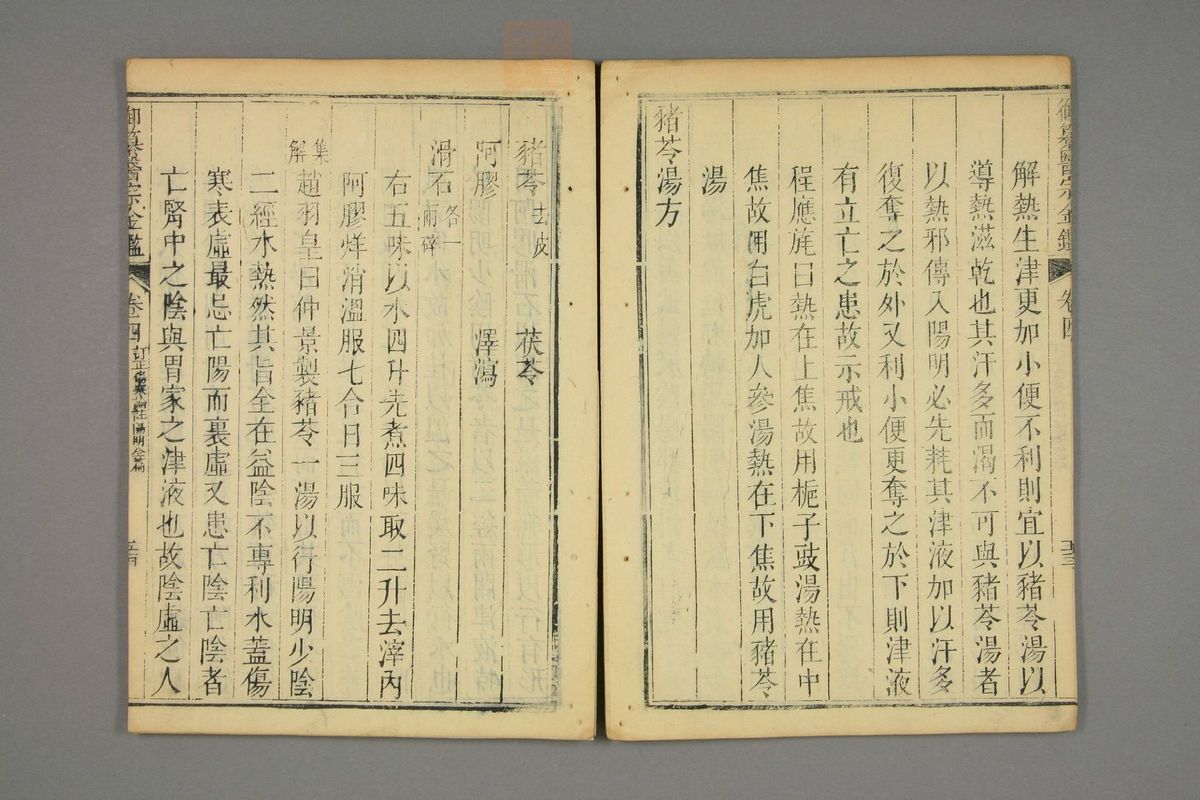 御纂醫宗金鑑 卷四 五三
解熱生津更加小便不利則宜以豬苓湯以
導熱滋乾也其汗多而渴不可與豬苓湯者
以熱邪傳入陽明必先耗其津液加以汗多
復奪之於外又利小便更奪之於下則津液
有立亡之患故示戒也
程應旄曰熱在上焦故用梔子豉湯熱在中
焦故用白虎加人參湯熱在下焦故用豬苓
湯
豬苓湯方
豬苓去皮 茯苓
阿膠 澤瀉
滑石碎各一兩
右五味以水四升先煮四味取二升去滓內
阿膠烊消溫服七合日三服
集解
趙羽皇曰仲景製豬苓一湯以行陽明少陰
二經水熱然其旨全在益陰不專利水蓋傷
寒表虛最忌亡陽而裏虛又患亡陰亡陰者
亡腎中之陰與胃家之津液也故陰虛之人
御纂醫宗金鑑 卷四 訂正傷寒論註陽明全篇